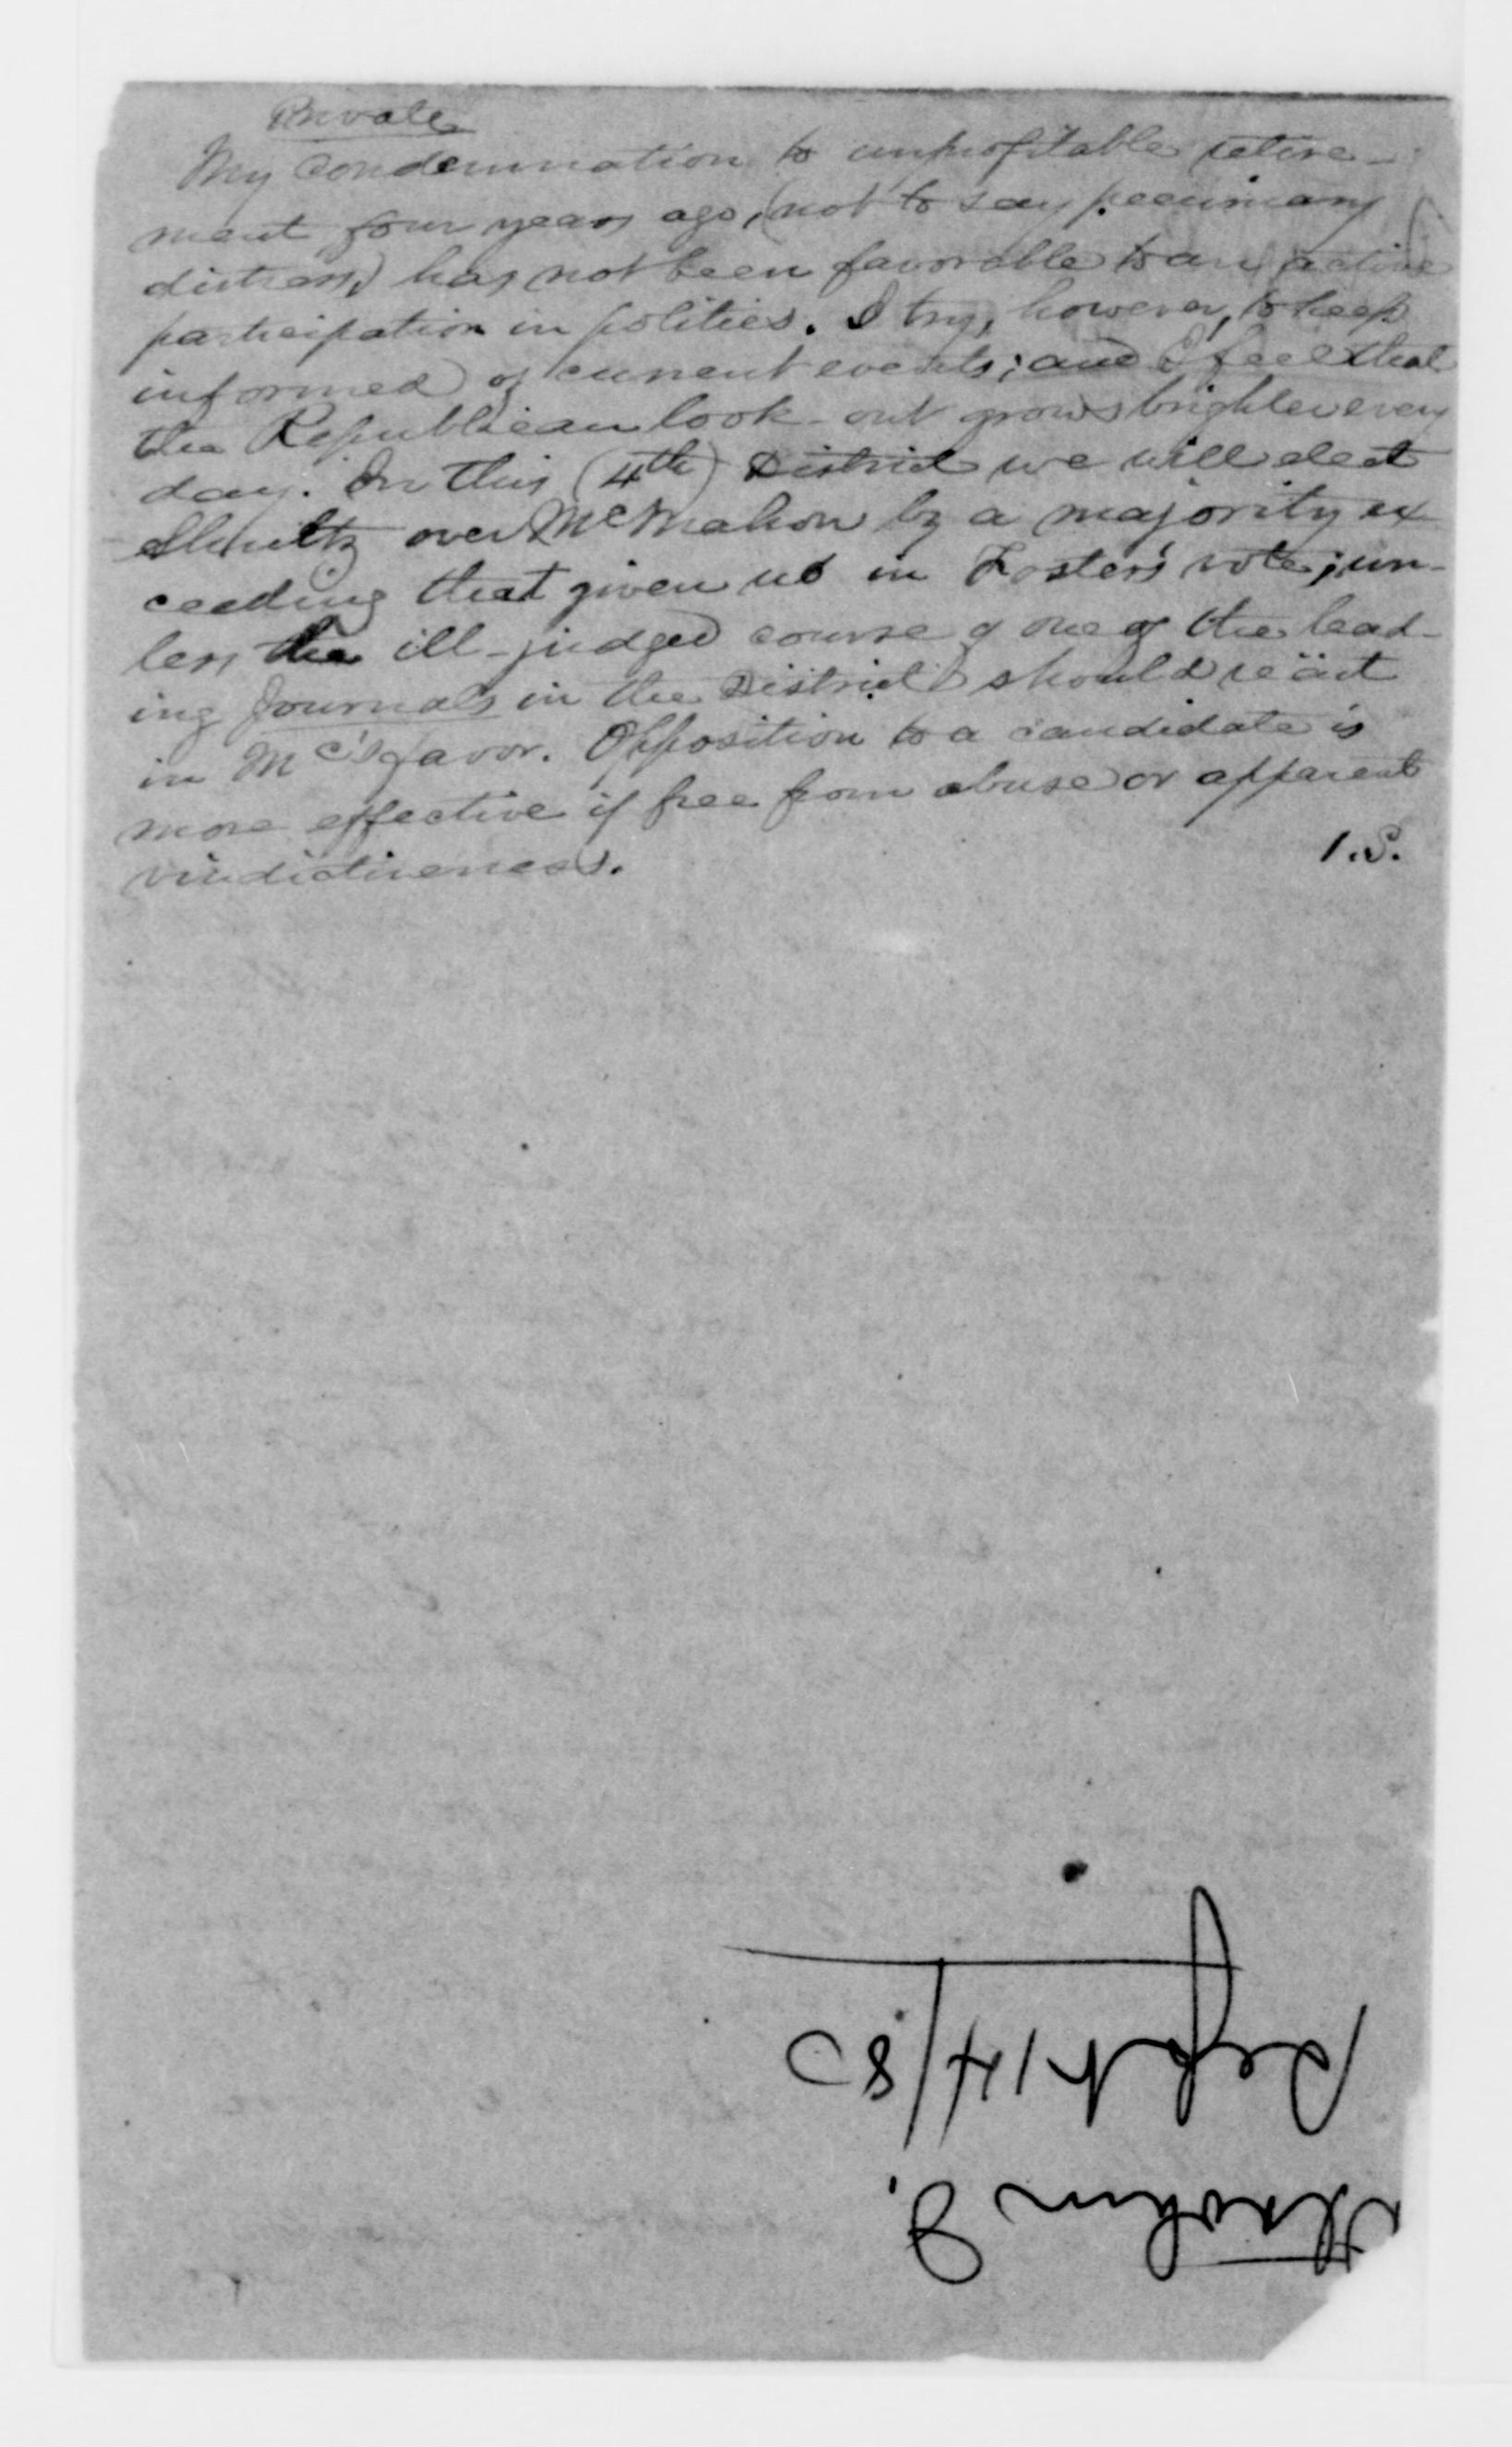 Private
My condemnation to unprofitable retire-
ment four years ago, (not to say pecuniary
distress,) has not been favorable to an active
participation in politics. I try, however, to keep
informed of current events; and I feel that
the Republican look-out grows brighter every
day. In this (4th) District we will elect
Shultz over McMahon by a majority ex
ceeding that given us in Foster's vote; un-
less the ill-judged course of one of the lead-
ing journals in the District should reäct
in Mc's favor. Opposition to a candidate is
more effective if free from abuse or apparent
vindictiveness.
I.S.
Strohm I.
Sept 14/80